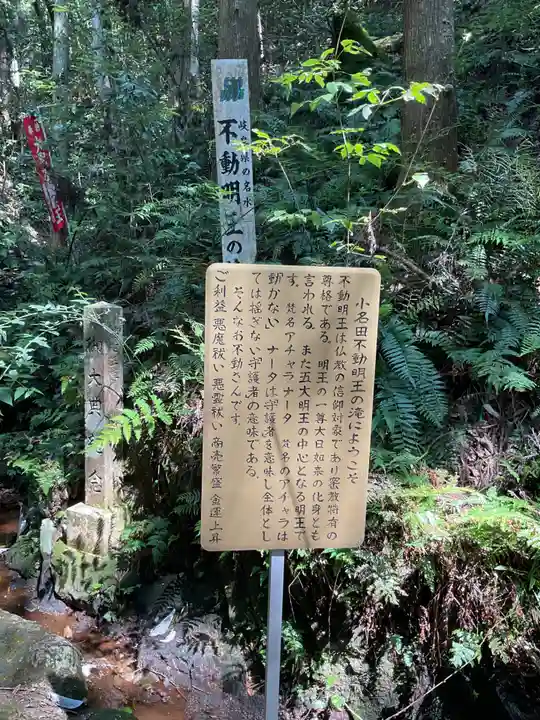 岐阜県の名水
不動明王の
小名田不動明王の滝にようこそ
不動明王は仏教の信仰対象であり密教特有の
尊格である。明王の一尊大日如来の化身とも
言われる。また五大明王の中心となる明王で
す。梵名アチャラナータ 梵名のアチャラは
動かない ナータは守護者を意味し全体とし
ては揺ぎない守護者の意味である。
そんなお不動さんです。
ご利益 悪魔祓い 悪霊祓い 商売繁盛 金運上昇